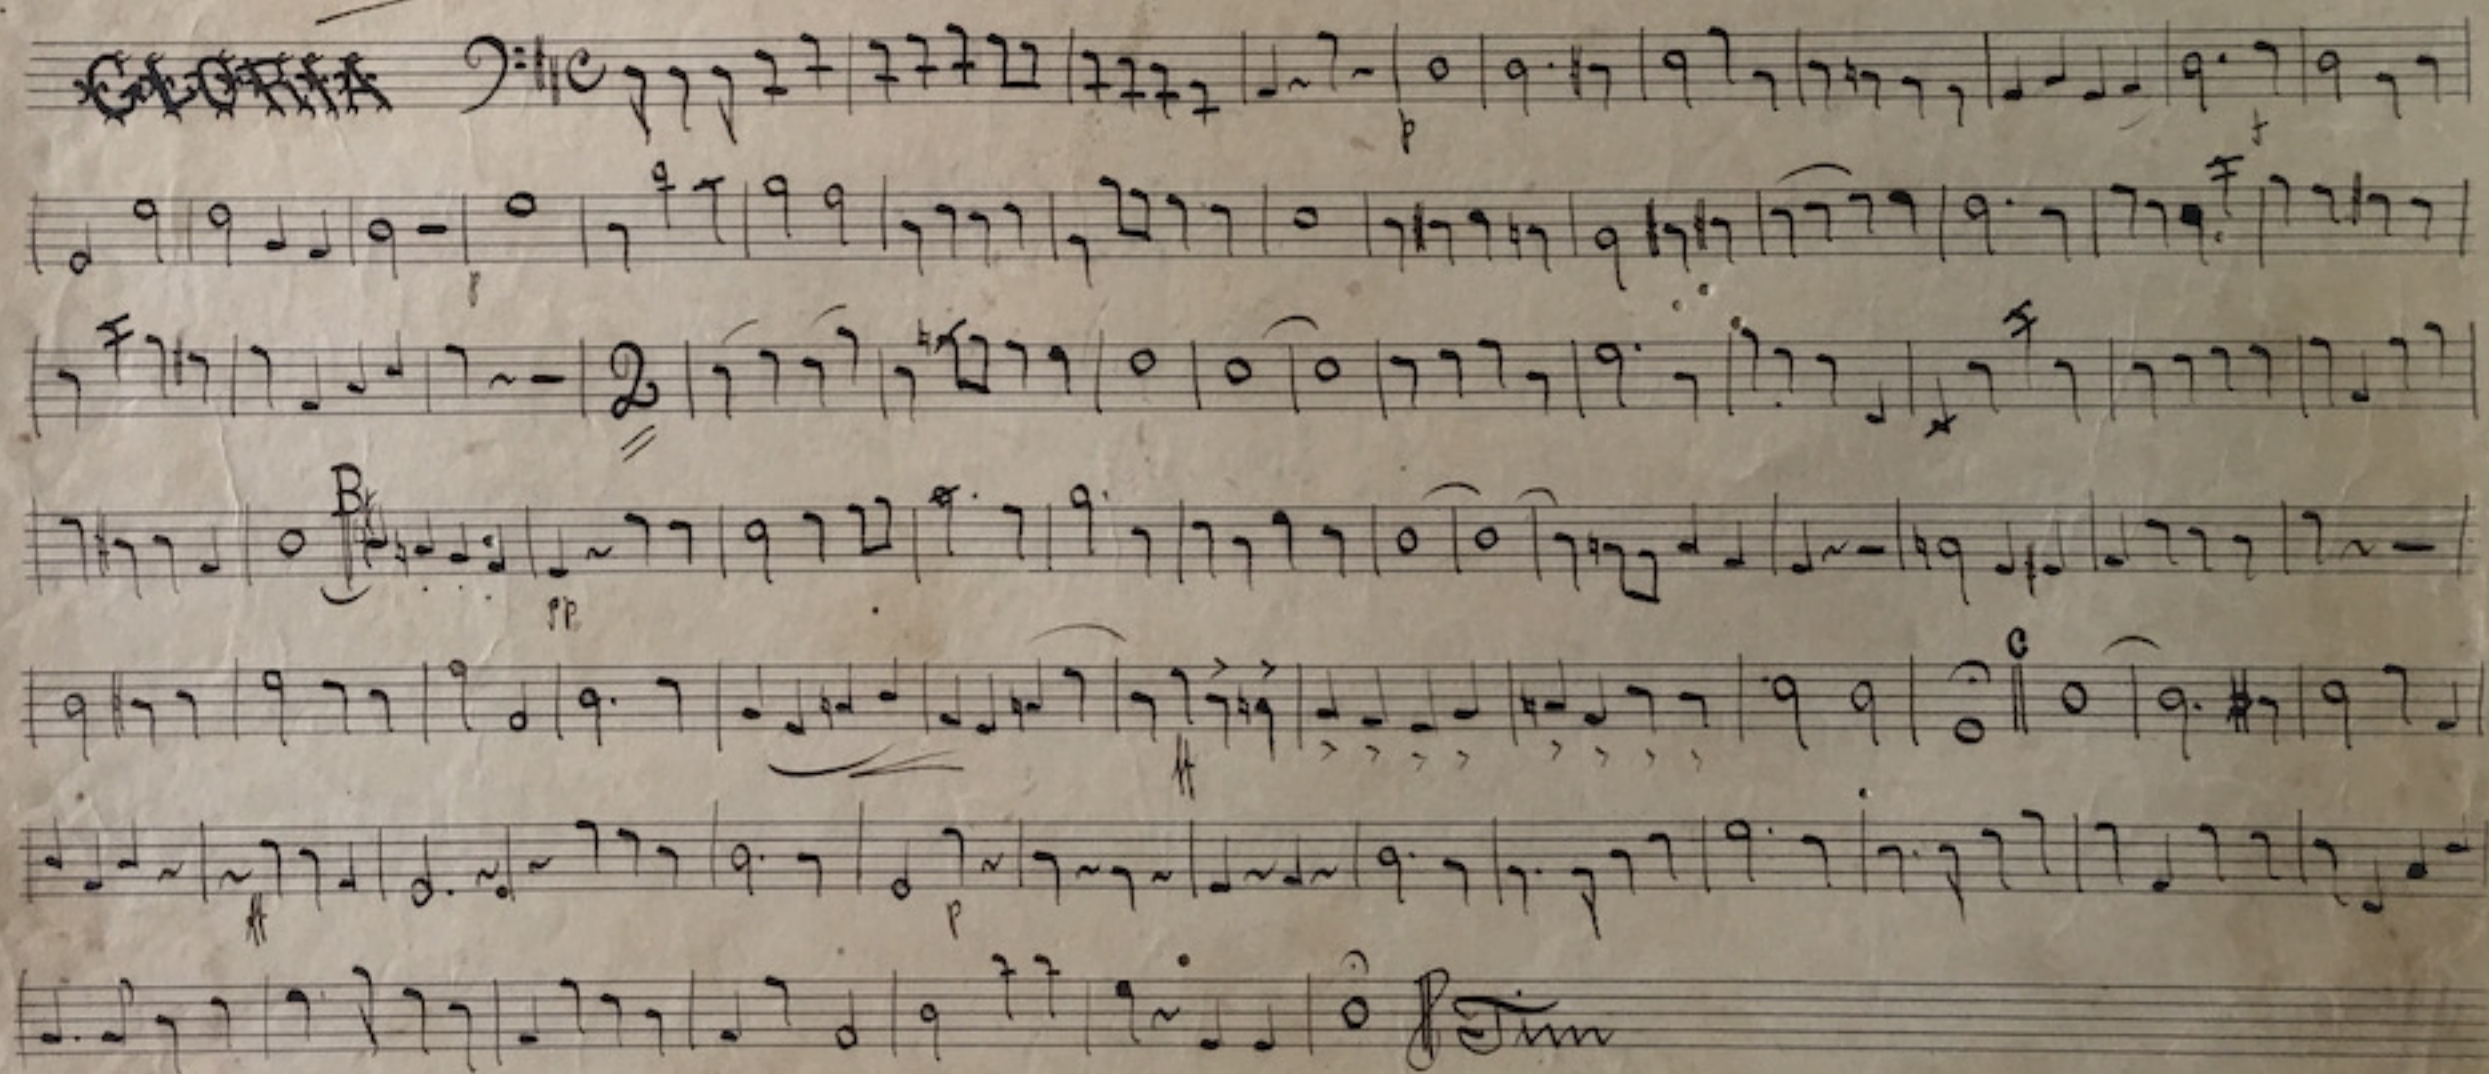 GLORIA C
p f
p
2
B
pp
C
ff
ff p
Fim